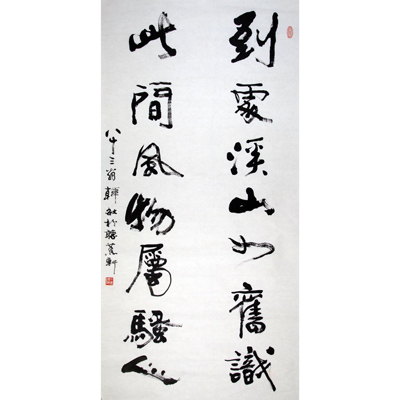 到處溪山如舊識
此間風物屬騷人
八十三翁韓敏於聽蕉軒